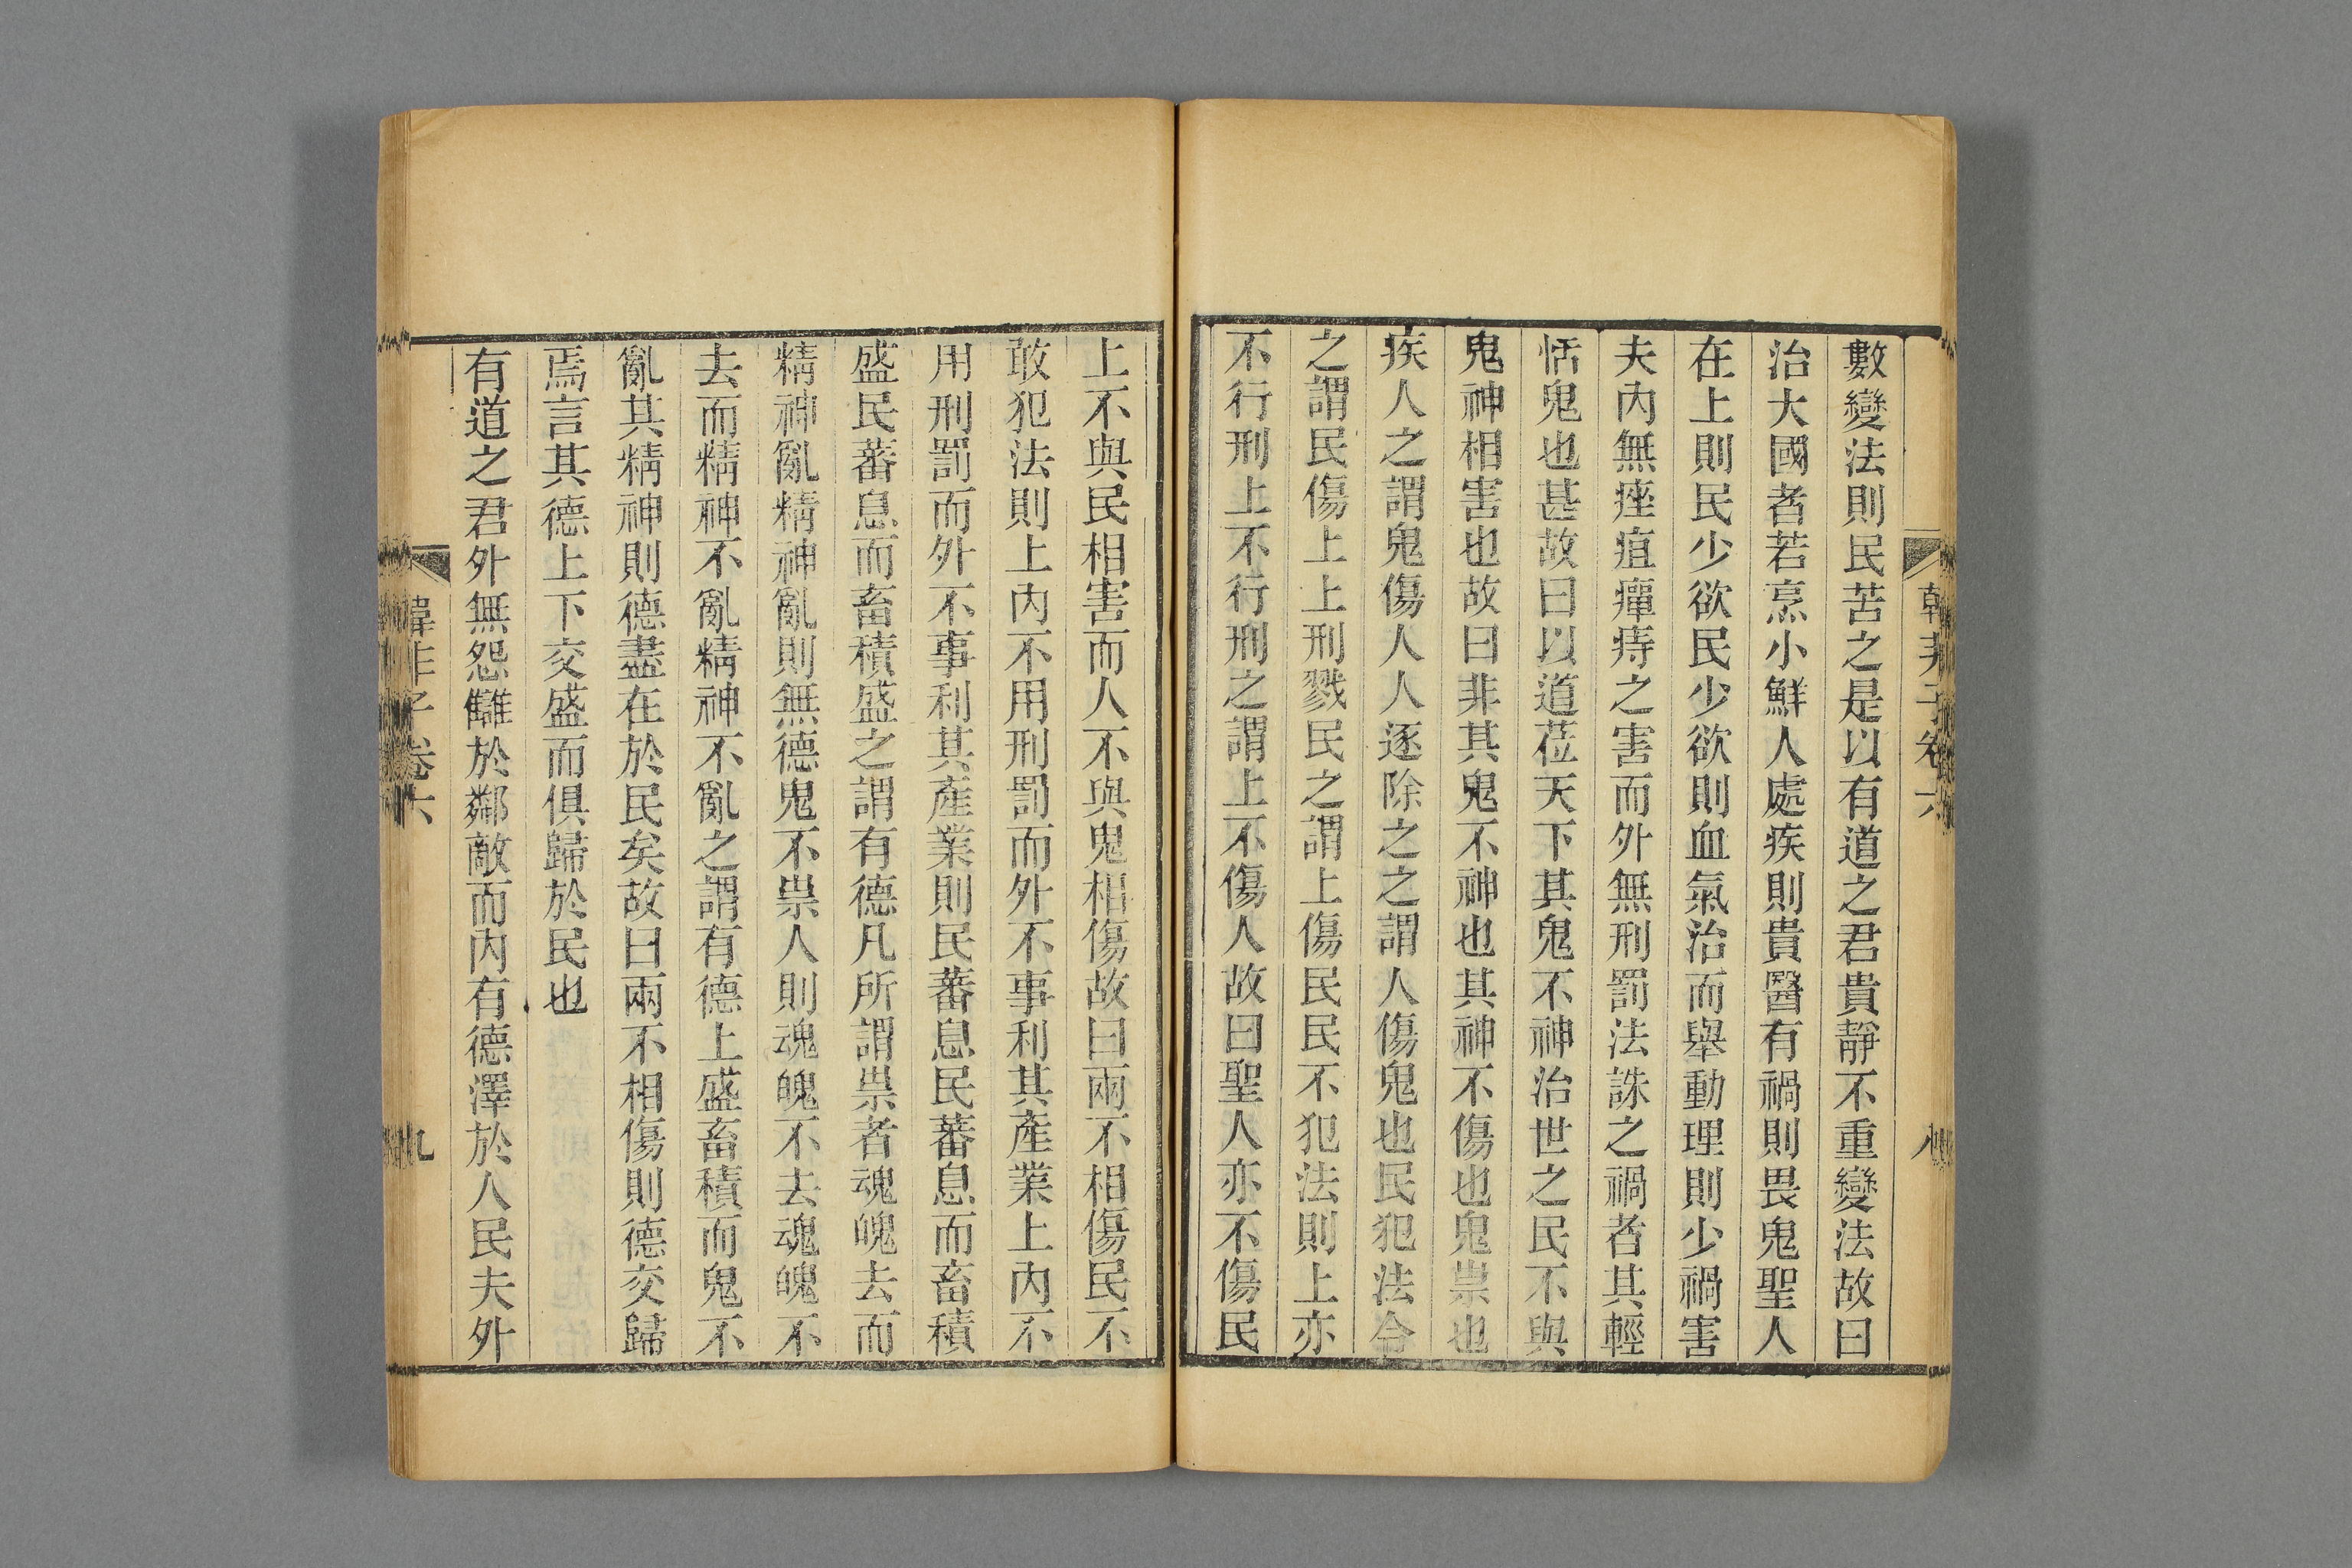 韓非子卷六
八
數變法則民苦之是以有道之君貴靜不重變法故曰
治大國者若烹小鮮人處疾則貴醫有禍則畏鬼聖人
在上則民少欲民少欲則血氣治而舉動理則少禍害
夫內無痤疽癉痔之害而外無刑罰法誅之禍者其輕
恬鬼也甚故曰以道莅天下其鬼不神治世之民不與
鬼神相害也故曰非其鬼不神也其神不傷也鬼祟也
疾人之謂鬼傷人人逐除之之謂人傷鬼也民犯法令
之謂民傷上上刑戮民之謂上傷民民不犯法則上亦
不行刑上不行刑之謂上不傷人故曰聖人亦不傷民
上不與民相害而人不與鬼相傷故曰兩不相傷民不
敢犯法則上內不用刑罰而外不事利其產業上內不
用刑罰而外不事利其產業則民蕃息民蕃息而畜積
盛民蕃息而畜積盛之謂有德凡所謂祟者魂魄去而
精神亂精神亂則無德鬼不祟人則魂魄不去魂魄不
去而精神不亂精神不亂之謂有德上盛畜積而鬼不
亂其精神則德盡在於民矣故曰兩不相傷則德交歸
焉言其德上下交盛而俱歸於民也
有道之君外無怨讎於鄰敵而內有德澤於人民夫外
韓非子卷六
九